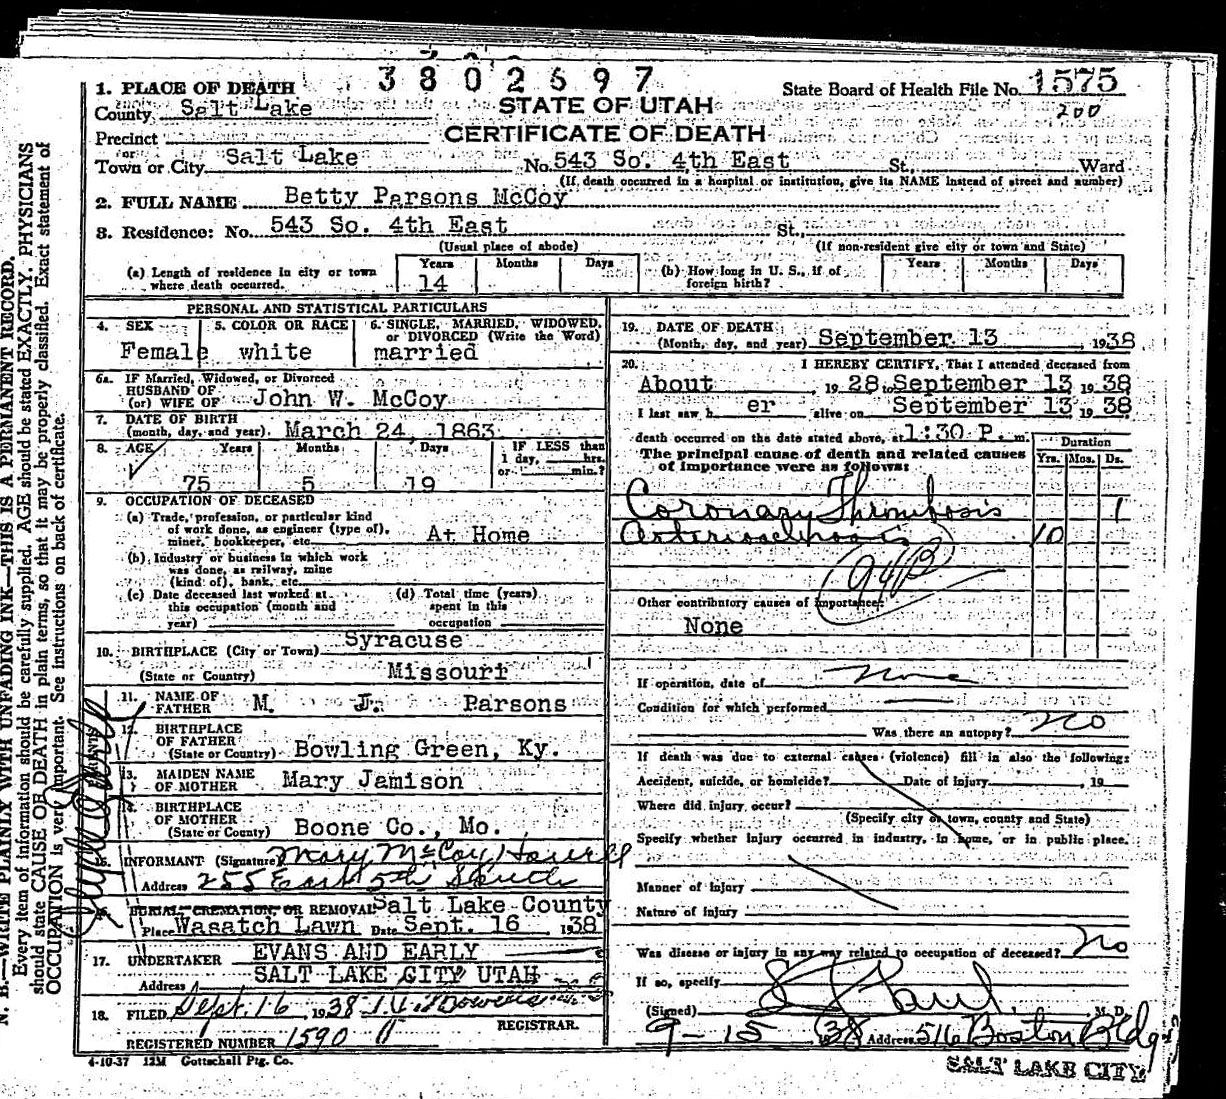 3802697
1. PLACE OF DEATH
State Board of Health File No. 1575
County Salt Lake
STATE OF UTAH
200
Precinct
CERTIFICATE OF DEATH
or
Town or City Salt Lake No. 543 So. 4th East St., Ward
(If death occurred in a hospital or institution, give its NAME instead of street and number)
2. FULL NAME Betty Parsons McCoy
3. Residence: No. 543 So. 4th East St.
(Usual place of abode) (If non-resident give city or town and State)
(a) Length of residence in city or town where death occurred. Years 14 Months Days
(b) How long in U. S., if of foreign birth? Years Months Days
PERSONAL AND STATISTICAL PARTICULARS
4. SEX Female
5. COLOR OR RACE white
6. SINGLE, MARRIED, WIDOWED, or DIVORCED (Write the Word) married
6a. IF Married, Widowed, or Divorced
HUSBAND OF
(or) WIFE OF John W. McCoy
7. DATE OF BIRTH
(month, day, and year). March 24, 1863
8. AGE Years Months Days IF LESS than
1 day, hrs.
or min.?
75 5 19
9. OCCUPATION OF DECEASED
(a) Trade, profession, or particular kind
of work done, as engineer (type of),
miner, bookkeeper, etc. At Home
(b) Industry or business in which work
was done, as railway, mine
(kind of), bank, etc.
(c) Date deceased last worked at
this occupation (month and
year)
(d) Total time (years)
spent in this
occupation
10. BIRTHPLACE (City or Town) Syracuse
(State or Country) Missouri
11. NAME OF
FATHER M. J. Parsons
12. BIRTHPLACE
OF FATHER
(State or Country) Bowling Green, Ky.
13. MAIDEN NAME
OF MOTHER Mary Jamison
14. BIRTHPLACE
OF MOTHER
(State or County) Boone Co., Mo.
PARENTS
15. INFORMANT (Signature) Mary McCoy Howell
Address 255 East 5th South
16. BURIAL, CREMATION, OR REMOVAL Salt Lake County
Place Wasatch Lawn Date Sept. 16 1938
17. UNDERTAKER EVANS AND EARLY
Address SALT LAKE CITY UTAH
18. FILED Sept. 16, 1938
REGISTRAR.
REGISTERED NUMBER 1590
4-10-37 12M Gottschall Ptg. Co.
19. DATE OF DEATH
(Month, day, and year) September 13 1938
20. I HEREBY CERTIFY, That I attended deceased from
About 1928 to September 13 1938
I last saw her alive on September 13 1938
death occurred on the date stated above, at 1:30 P. m.
The principal cause of death and related causes
of importance were as follows:
Duration
Yrs. Mos. Ds.
Coronary Thrombosis 1
Arteriosclerosis 10
94B
Other contributory causes of importance:
None
If operation, date of None
Condition for which performed
Was there an autopsy? No
If death was due to external causes (violence) fill in also the following:
Accident, suicide, or homicide? Date of injury 19
Where did injury occur?
(Specify city or town, county and State)
Specify whether injury occurred in industry, in home, or in public place.
Manner of injury
Nature of injury
Was disease or injury in any way related to occupation of deceased? No
If so, specify
(Signed) Paul M. D.
9-15 38 Address 516 Boston Bldg
SALT LAKE CITY
N. B.—WRITE PLAINLY WITH UNFADING INK—THIS IS A PERMANENT RECORD.
Every item of information should be carefully supplied. AGE should be stated EXACTLY. PHYSICIANS
should state CAUSE OF DEATH in plain terms, so that it may be properly classified. Exact statement of
OCCUPATION is very important. See instructions on back of certificate.